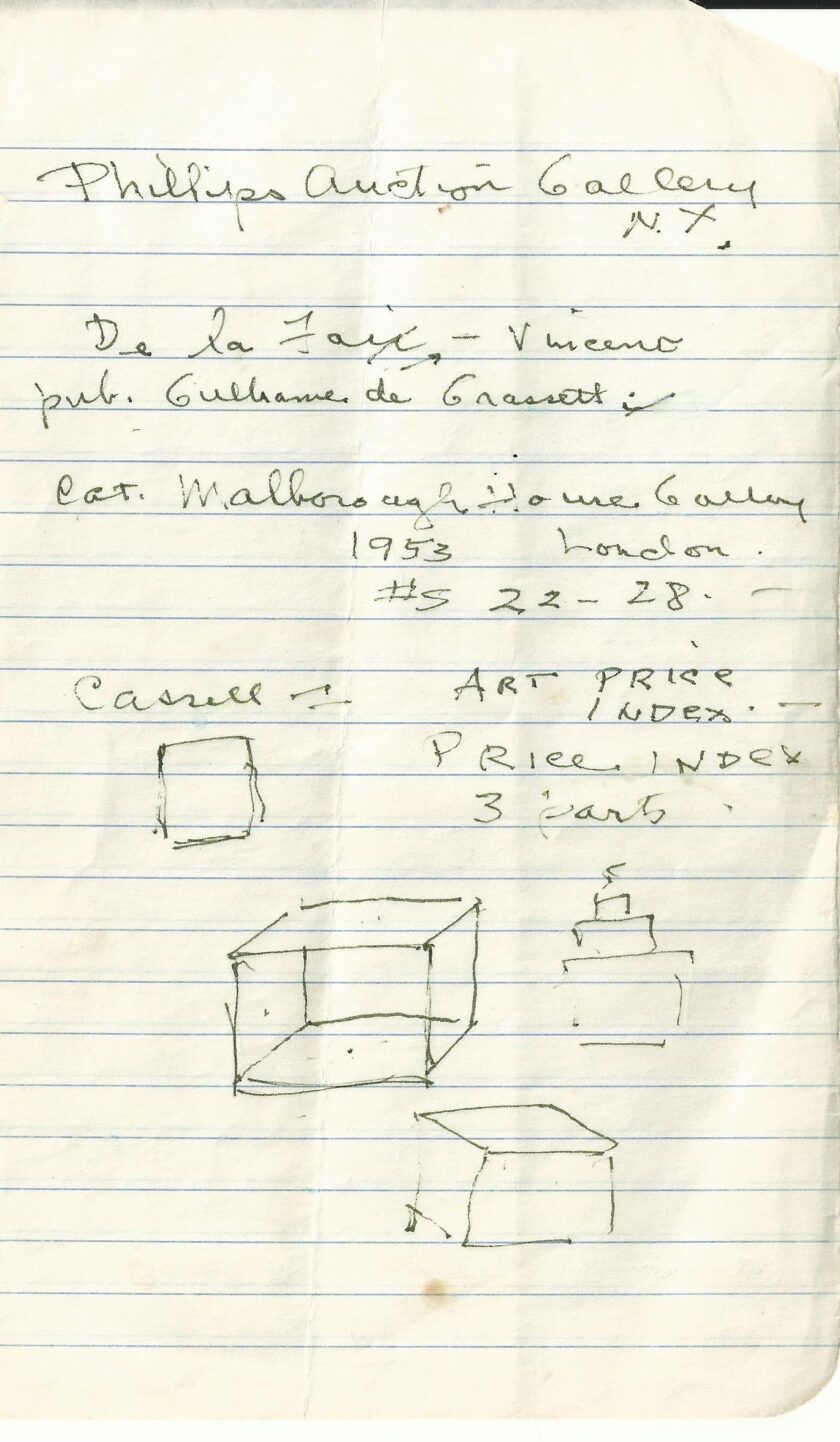 Phillips Auction Gallery
N.Y.
De la Faille - Vincent
pub. Guilhame de Grassett
Cat. Malborough House Gallery
1953 London.
#s 22 - 28. -
Cassell - ART PRICE
INDEX. -
PRICE INDEX
3 parts